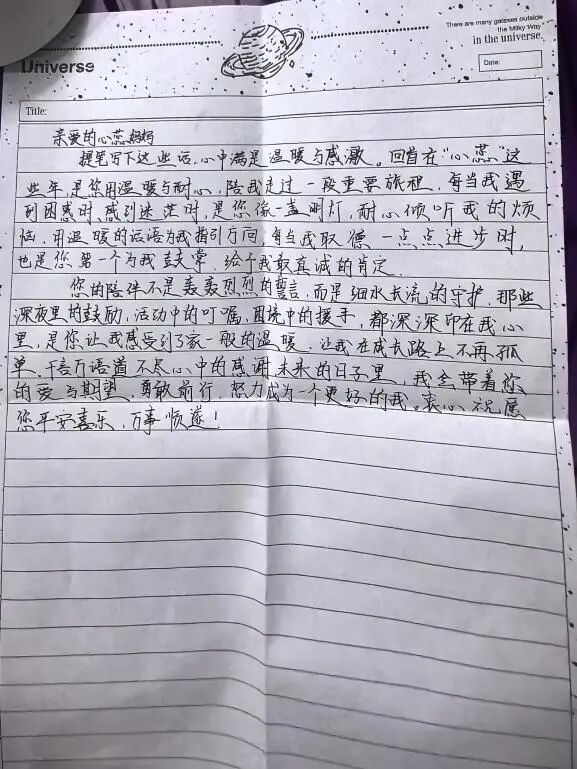 There are many galaxies outside
the Milky Way
in the universe.
Universe
Date:
Title:
亲爱的心蕊妈妈
提笔写下这些话,心中满是温暖与感激。回首在“心蕊”这
些年,是您用温暖与耐心,陪我走过一段重要旅程,每当我遇
到困惑时,感到迷茫时,是您像一盏明灯,耐心倾听我的烦
恼,用温暖的话语为我指引方向,每当我取德一点点进步时,
也是您第一个为我鼓掌,给予我最真诚的肯定。
您的陪伴不是轰轰烈烈的誓言,而是细水长流的守护,那些
深夜里的鼓励,活动中的叮嘱,困境中的援手,都深深印在我心
里,是您让我感受到了家一般的温暖,让我在成长路上不再孤
单,千言万语道不尽心中的感谢,未来的日子里,我会带着你
的爱与期望,勇敢前行,努力成为一个更好的我。衷心祝愿
您平安喜乐,万事顺遂!